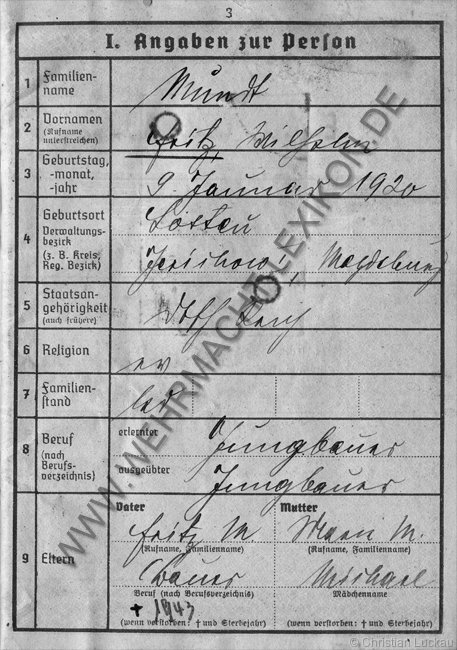 3
I. Angaben zur Person
1 Familien-
name
Mundt
2 Vornamen
(Rufname
unterstreichen)
Fritz Wilhelm
3 Geburtstag,
-monat,
-jahr
9. Januar 1920
4 Geburtsort
Verwaltungs-
bezirk
(z. B. Kreis,
Reg. Bezirk)
Lostau
Jerichow I, Magdeburg
5 Staatsan-
gehörigkeit
(auch frühere)
Reich
6 Religion
ev
7 Familien-
stand
led
8 Beruf
(nach
Berufs-
verzeichnis)
erlernter
Jungbauer
ausgeübter
Jungbauer
9 Eltern
Vater
Fritz M.
(Rufname, Familienname)
Bauer
Beruf (nach Berufsverzeichnis)
+ 1943
(wenn verstorben: † und Sterbejahr)
Mutter
M.
(Rufname, Familienname)
Michael
Mädchenname
(wenn verstorben: † und Sterbejahr)
WWW.WEHRMACHTLEXIKON.DE
© Christian Luckau